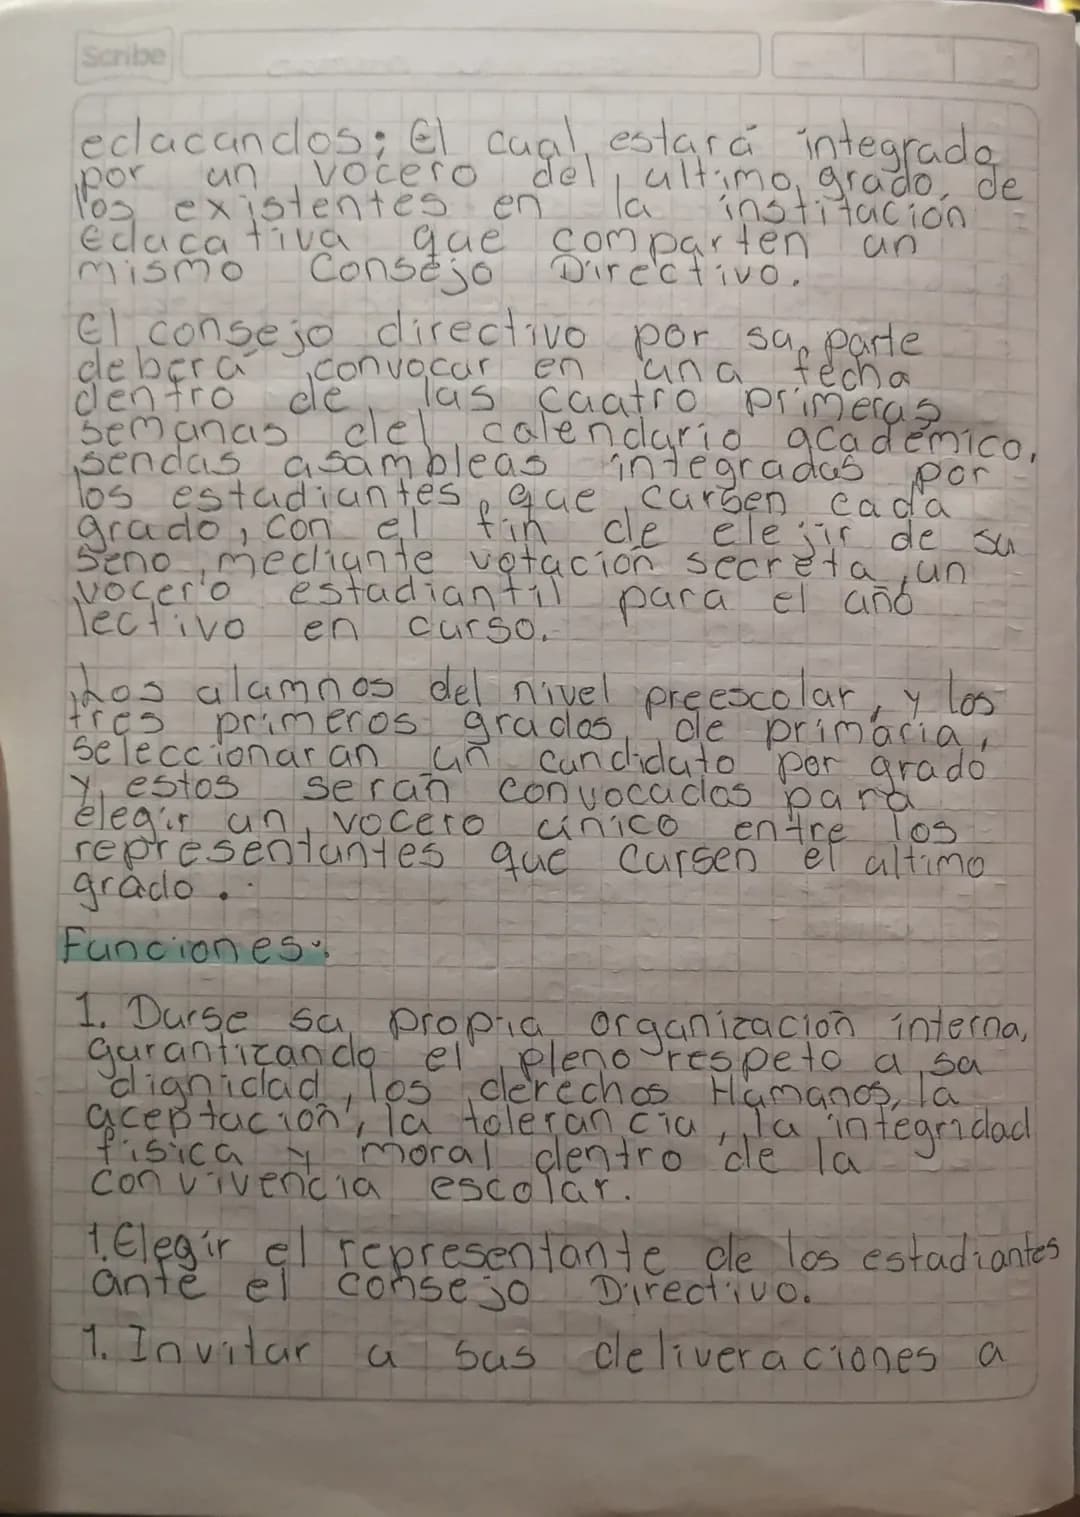 Scribe
educandos; El cual estará integrado
por un vocero del ultimo grado, de
los existentes en la institución
educativa que comparten un
mismo Consejo Directivo.
El consejo directivo por su parte
deberá convocar en una fecha
dentro de las cuatro primeras
semanas del calendario académico,
sendas asambleas integradas por
los estudiantes que cursen cada
grado, con el fin de elejir de su
seno, mediante votación secreta, un
vocero estudiantil para el año
lectivo en curso.
Los alumnos del nivel preescolar, y los
tres primeros grados, de primaria,
seleccionaran un candidato por grado
y estos serán convocados para
elegir un vocero único entre los
representantes que cursen el ultimo
grado.
Funciones:
1. Darse su propia organización interna,
garantizando el pleno respeto a su
dignidad, los derechos Humanos, la
aceptación, la tolerancia, la integridad
física y moral dentro de la
convivencia escolar.
1. Elegir el representante de los estudiantes
ante el consejo Directivo.
1. Invitar a sus deliveraciones a